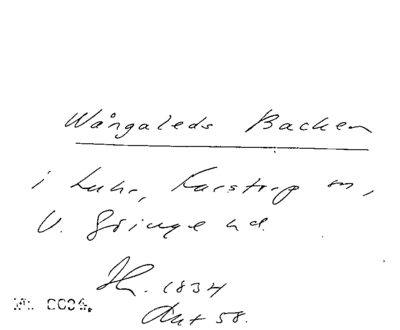 Wångaleds Backen
i Luhr, Karstorp m,
V. Göinge hd.
1834
Ant 58.